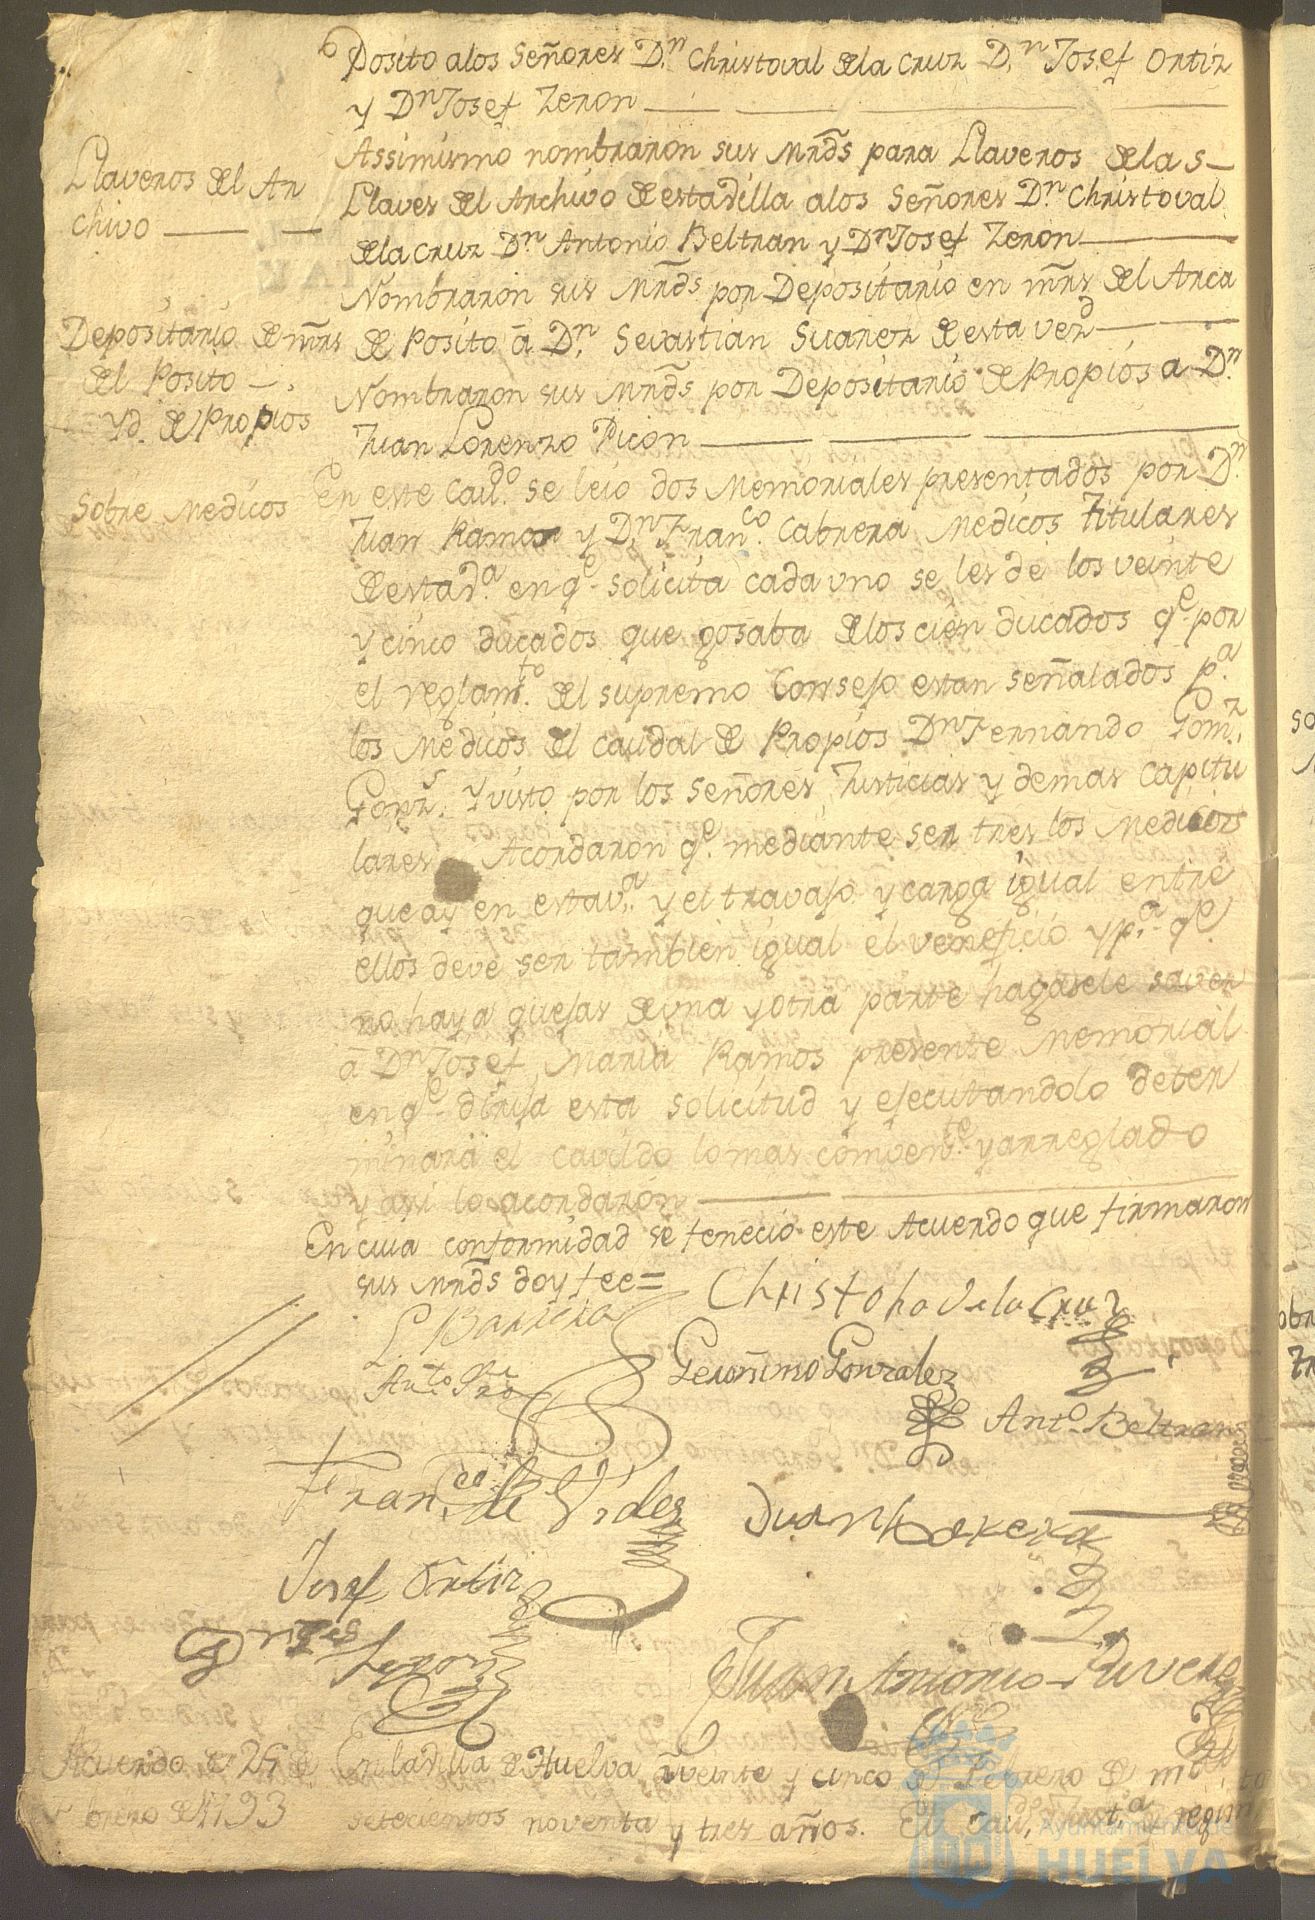 Posito alos Señores Dn. Christoval dela Cruz Dn. Josef Ortiz
y Dn Josef Zeron
Llaveros del Ar
chivo
Assimismo nombraron sus Mrds para Llaveros delas
Llaves del Archivo de esta dilla alos Señores Dn. Christoval
dela Cruz Dn. Antonio Beltran y Dn Josef Zeron
Depositario de mrs
del Posito
y d. de Propios
Nombraron sus Mrds por Depositario en mrs del Arca
de Posito á Dn. Sevastian Suarez de esta vezd
Nombraron sus Mrds por Depositario de Propios a Dn.
Juan Lorenzo Picon
Sobre Medicos
En este Cavdo. se leio dos Memoriales presentados por Dn.
Juan Ramos y Dn. Franco. Cabrera Medicos Titulares
de esta da. en qe. solicita cada vno se les dé los veinte
y cinco ducados que gosaba de los cien ducados qe. por
el reglamto. del supremo Consejo estan señalados pa.
los Medicos del caudal de Propios Dn Fernando Gomz.
Gonzs. Y visto por los Señores Justicias y demas Capitu
lares Acordaron qe. mediante ser tres los Medicos
que ay en esta va. y el travajo y carga igual entre
ellos deve ser tambien igual el veneficio y pa. qe.
no haya quejas de vna y otra parte hagasele saver
á Dn Josef Maria Ramos presente Memorial
en qe. dirija esta solicitud y ejecutandolo deter
minará el cavildo lo mas combente. y arreglado
y assi lo acordaron
En cuia conformidad se feneció este Acuerdo que firmaron
sus Mrds doy fee=
L Barrera
Christobal dela Cruz
Geronimo Gonzalez
Anto. Beltran
Franco. de Vides
Juan
Josef Ortiz
Zeron
Juan Antonio Rivero
Acuerdo de 25 de
brero de 1793
En la dilla de Huelva á veinte y cinco de Febrero de mil
setecientos noventa y tres años. El Cavdo. Justa. y regim
Ayuntamiento de
HUELVA